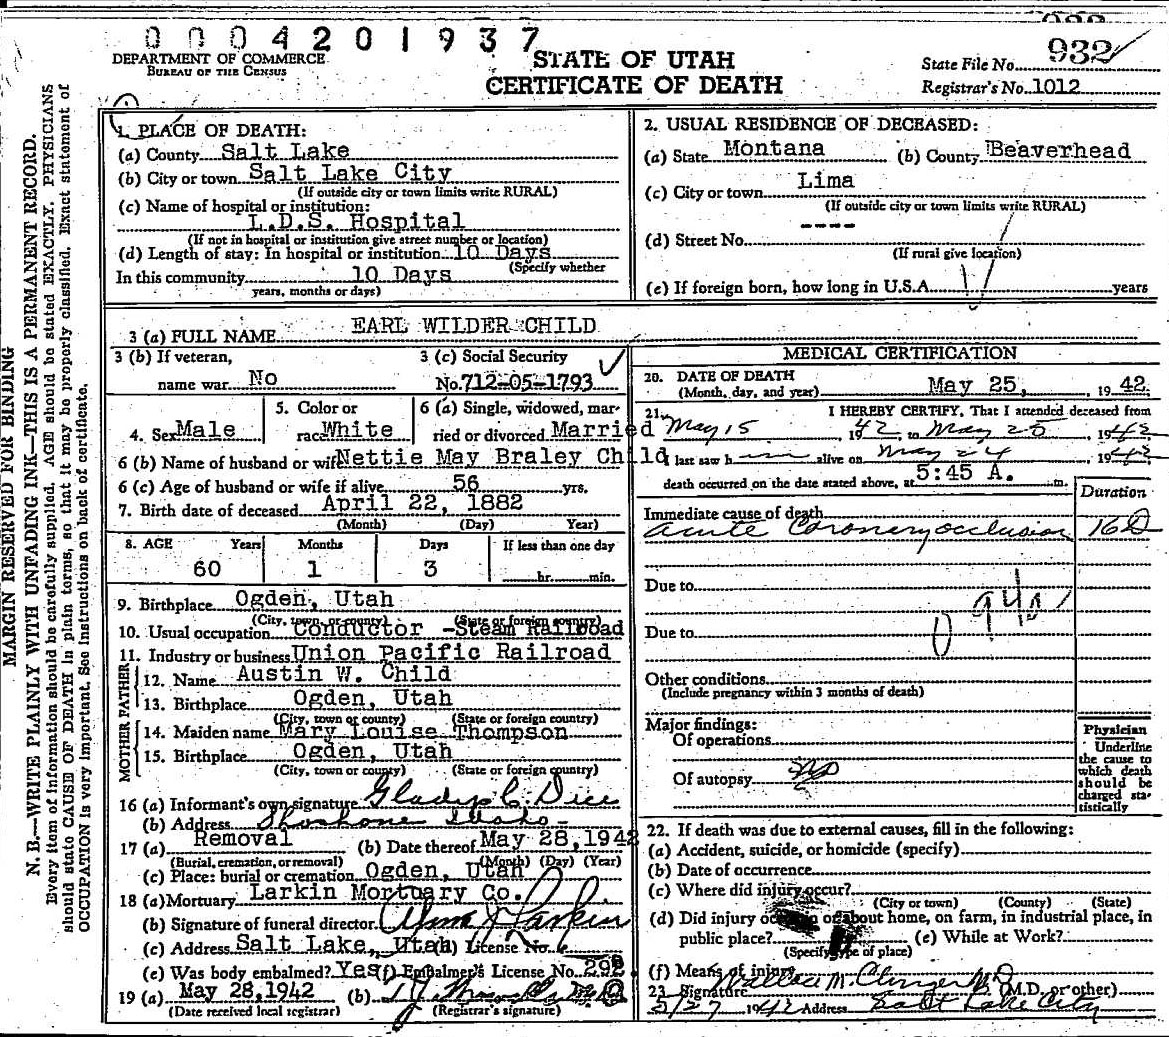 0004201937
932
DEPARTMENT OF COMMERCE
BUREAU OF THE CENSUS
STATE OF UTAH
CERTIFICATE OF DEATH
State File No. 932
Registrar's No. 1012
MARGIN RESERVED FOR BINDING
N. B.—WRITE PLAINLY WITH UNFADING INK—THIS IS A PERMANENT RECORD.
Every item of information should be carefully supplied. AGE should be stated EXACTLY. PHYSICIANS
should state CAUSE OF DEATH in plain terms, so that it may be properly classified. Exact statement of
OCCUPATION is very important. See instructions on back of certificate.
1. PLACE OF DEATH:
(a) County Salt Lake
(b) City or town Salt Lake City
(If outside city or town limits write RURAL)
(c) Name of hospital or institution:
L.D.S. Hospital
(If not in hospital or institution give street number or location)
(d) Length of stay: In hospital or institution 10 Days
(Specify whether
In this community 10 Days
years, months or days)
2. USUAL RESIDENCE OF DECEASED:
(a) State Montana (b) County Beaverhead
(c) City or town Lima
(If outside city or town limits write RURAL)
(d) Street No. ----
(If rural give location)
(e) If foreign born, how long in U.S.A. years
3 (a) FULL NAME EARL WILDER CHILD
3 (b) If veteran,
name war No
3 (c) Social Security
No. 712-05-1793
4. Sex Male
5. Color or
race White
6 (a) Single, widowed, mar-
ried or divorced Married
6 (b) Name of husband or wife Nettie May Braley Child
6 (c) Age of husband or wife if alive 56 yrs.
7. Birth date of deceased April 22, 1882
(Month) (Day) Year)
8. AGE Years Months Days If less than one day
60 1 3 hr. min.
9. Birthplace Ogden, Utah
(City, town, or county) (State or foreign country)
10. Usual occupation Conductor -Steam Railroad
11. Industry or business Union Pacific Railroad
FATHER
12. Name Austin W. Child
13. Birthplace Ogden, Utah
(City, town or county) (State or foreign country)
MOTHER
14. Maiden name Mary Louise Thompson
15. Birthplace Ogden, Utah
(City, town or county) (State or foreign country)
16 (a) Informant's own signature Gladys C. Dice
(b) Address Shoshone Idaho
17 (a) Removal (b) Date thereof May 28, 1942
(Burial, cremation, or removal) (Month) (Day) (Year)
(c) Place: burial or cremation Ogden, Utah
18 (a) Mortuary Larkin Mortuary Co.
(b) Signature of funeral director Larkin
(c) Address Salt Lake, Utah (d) License No. 6
(e) Was body embalmed? Yes (f) Embalmer's License No. 292
19 (a) May 28, 1942 (b)
(Date received local registrar) (Registrar's signature)
MEDICAL CERTIFICATION
20. DATE OF DEATH
(Month, day, and year) May 25, 1942.
21. I HEREBY CERTIFY, That I attended deceased from
May 15 1942, to May 25 1942
I last saw h alive on May 24 1942
death occurred on the date stated above, at 5:45 A. m.
Duration
Immediate cause of death
Acute Coronary occlusion 16D
Due to
94a
Due to
Other conditions
(Include pregnancy within 3 months of death)
Major findings:
Of operations
Of autopsy No
Physician
Underline
the cause to
which death
should be
charged sta-
tistically
22. If death was due to external causes, fill in the following:
(a) Accident, suicide, or homicide (specify)
(b) Date of occurrence
(c) Where did injury occur?
(City or town) (County) (State)
(d) Did injury occur in or about home, on farm, in industrial place, in
public place? (e) While at Work?
(Specify type of place)
(f) Means of injury
23 Signature Wallace M. M.D. (M.D. or other)
5/27 1942 Address Salt Lake City